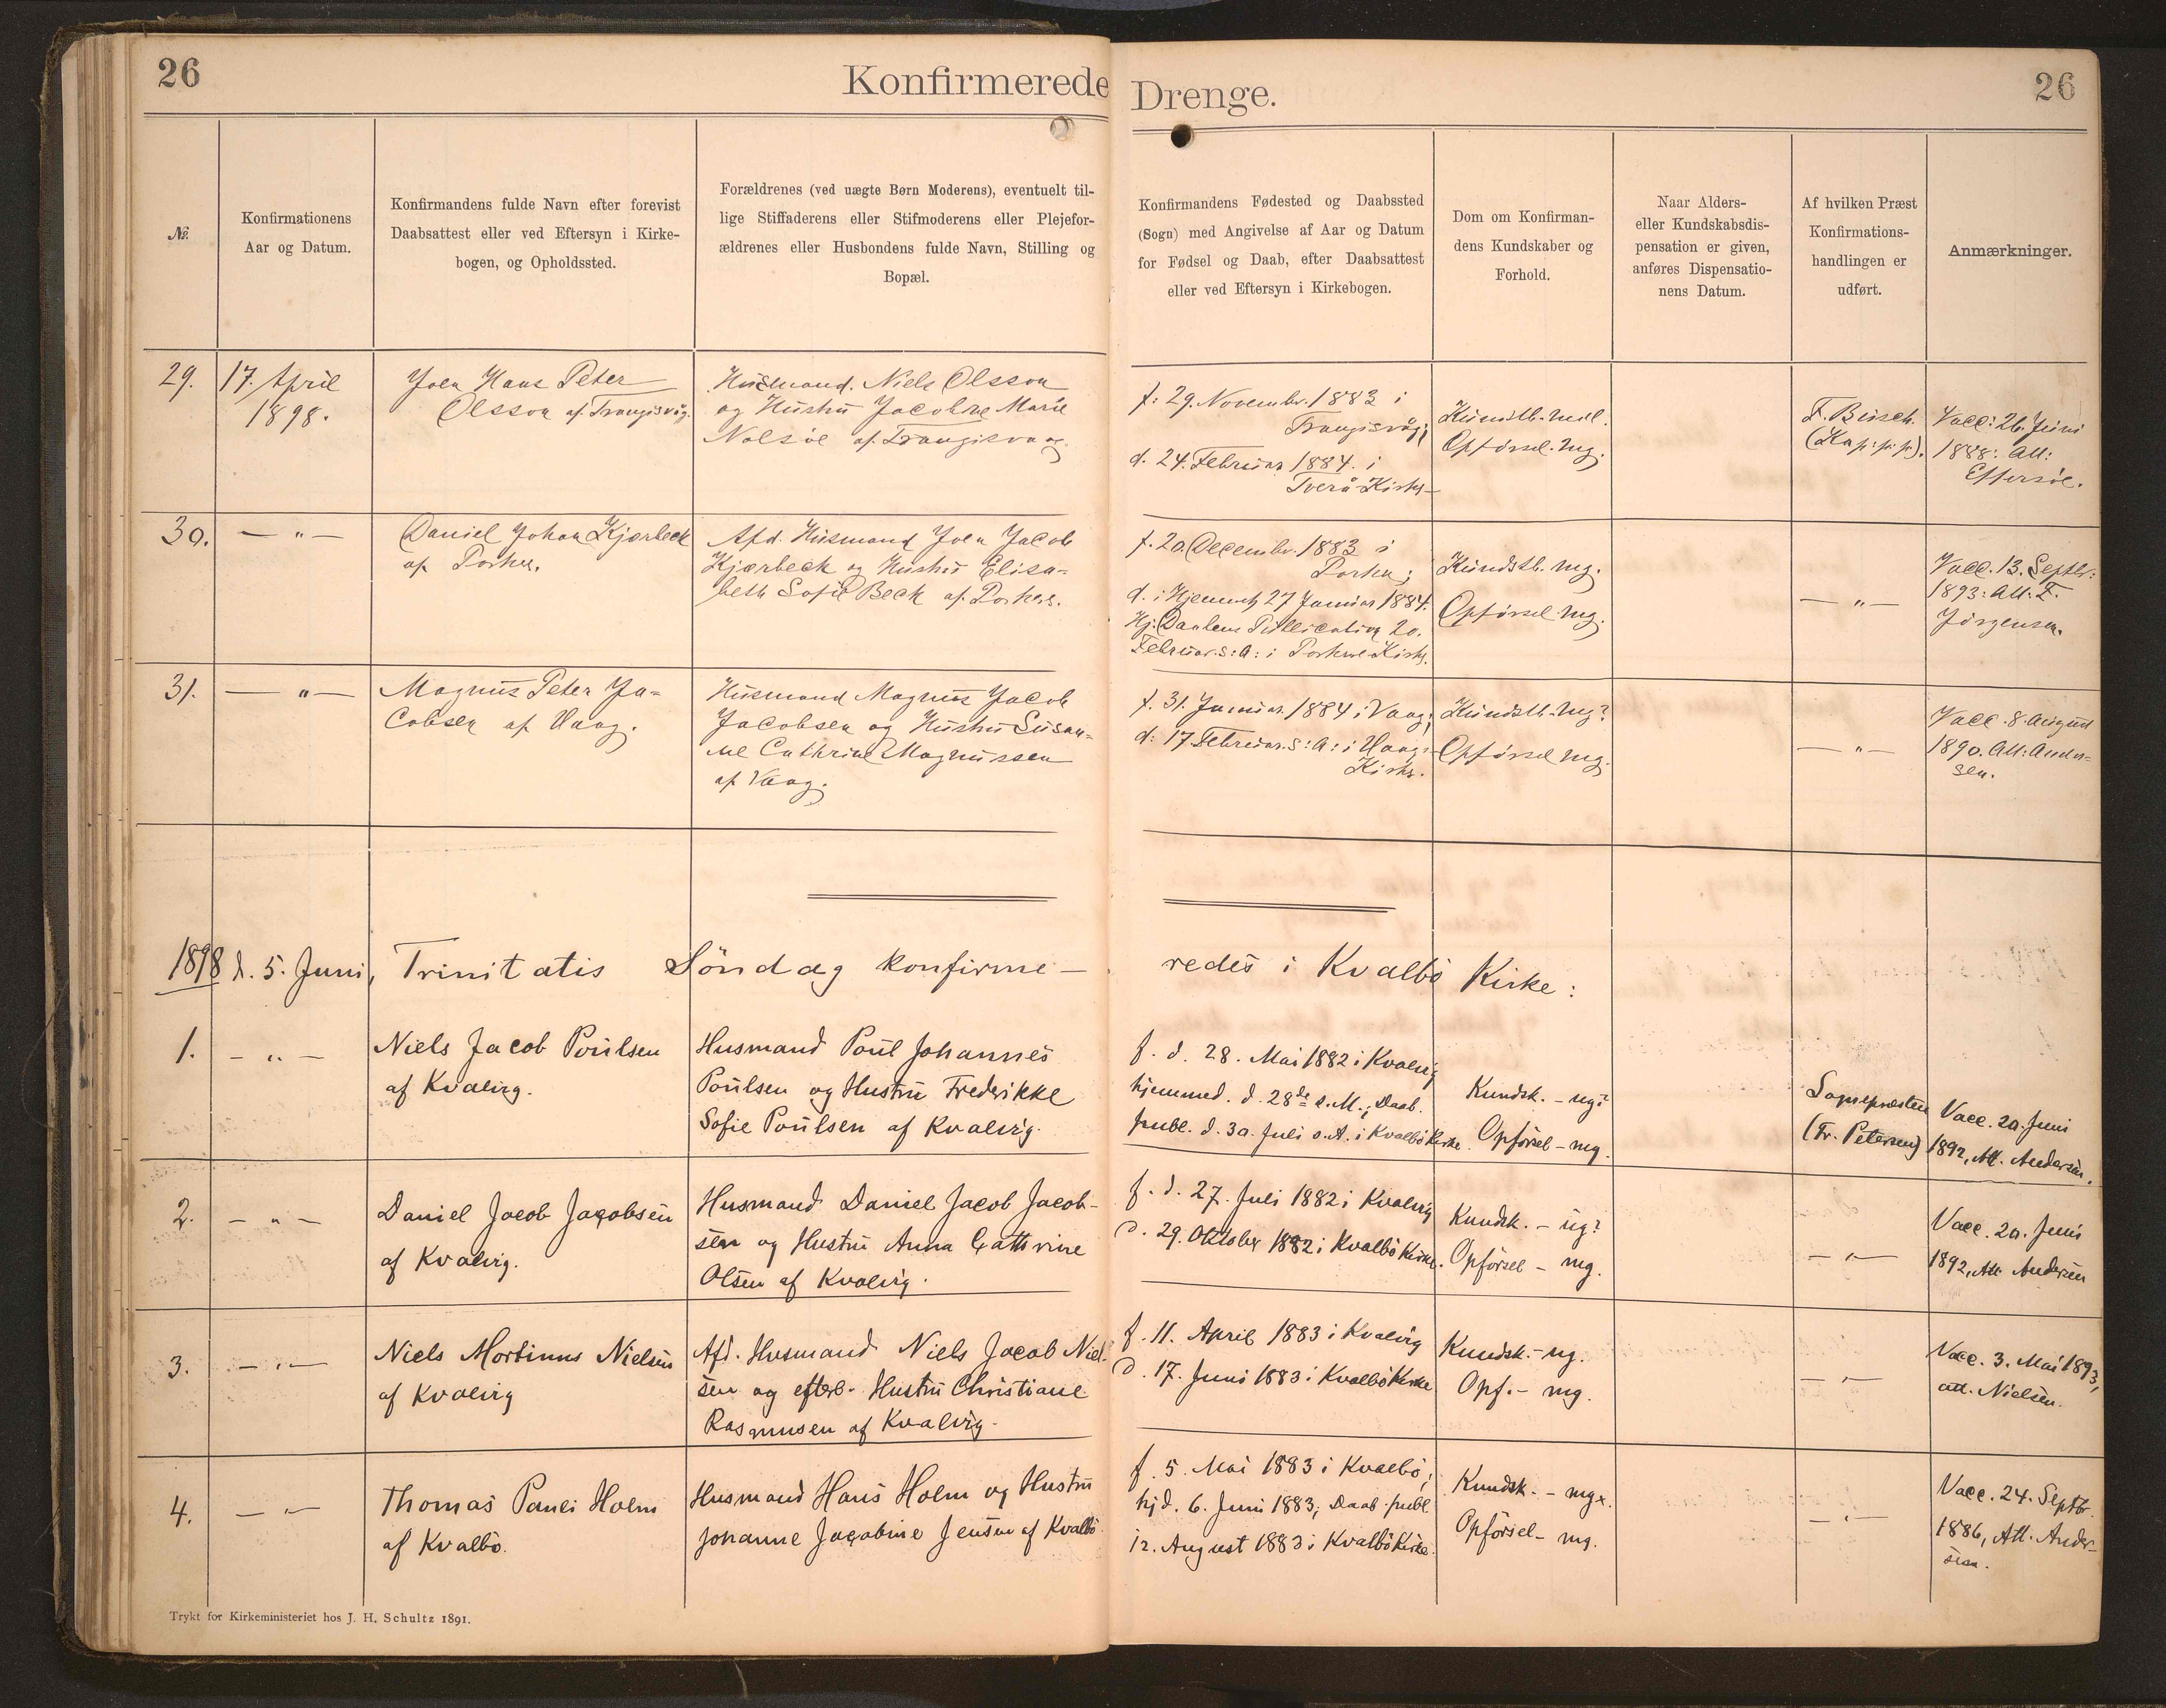 26
Konfirmerede Drenge.
26
№.
Konfirmationens
Aar og Datum.
Konfirmandens fulde Navn efter forevist
Daabsattest eller ved Eftersyn i Kirke-
bogen, og Opholdssted.
Forældrenes (ved uægte Børn Moderens), eventuelt til-
lige Stiffaderens eller Stifmoderens eller Plejefor-
ældrenes eller Husbondens fulde Navn, Stilling og
Bopæl.
Konfirmandens Fødested og Daabssted
(Sogn) med Angivelse af Aar og Datum
for Fødsel og Daab, efter Daabsattest
eller ved Eftersyn i Kirkebogen.
Dom om Konfirman-
dens Kundskaber og
Forhold.
Naar Alders-
eller Kundskabsdis-
pensation er given,
anføres Dispensatio-
nens Datum.
Af hvilken Præst
Konfirmations-
handlingen er
udført.
Anmærkninger.
29.
17. April
1898.
Joen Hans Peter
Olsson af Trangisvåg.
Husmand. Niels Olsson
og Hustru Jacobine Marie
Nolsöe af Trangisvaag.
f: 29. Novembr. 1883 i
Trangisvåg;
d. 24. Februar 1884. i
Tverå-Kirke
Kundsk. mdl.
Opførsel. mg.
F. Busch.
(Kap: p: p:).
Vacc: 26. Juni
1888: att:
Effersöe.
30.
— " —
Daniel Johan Kjærbeck
af Porkere.
Afd. Husmand Joen Jacob
Kjærbeck og Hustru Elisa-
beth Sofie Beck af Porkere.
f. 20. Decembr. 1883 i
Porkere;
d. i Hjemmet 27 Januar 1884.
Hj: Daabens Publication 20.
Februar. s: A: i Porkere-Kirke.
Kundsk. mg.
Opførsel mg.
— " —
Vacc. 13. Septbr:
1893: att: F.
Jörgensen.
31.
— " —
Magnus Peter Ja-
cobsen af Vaag.
Husmand Magnus Jacob
Jacobsen og Hustru Susan-
ne Cathrine Magnussen
af Vaag.
f. 31. Januar. 1884 i Vaag;
d: 17. Februar. s: A: i Vaag-
Kirke.
Kundsk. mg?
Opførsel mg.
— " —
Vacc. 8. August
1890. Att: Ander-
sen.
1898 d. 5. Juni, Trinitatis Söndag konfirme-
redes i Kvalbö Kirke:
1.
— " —
Niels Jacob Poulsen
af Kvalvig.
Husmand Poul Johannes
Poulsen og Hustru Frederikke
Sofie Poulsen af Kvalvig.
f. d. 28. Mai 1882 i Kvalvig
hjemmed. d. 28de s. M.; Daab.
publ. d. 30. Juli s. A. i Kvalbö Kirke.
Kundsk. - ug?
Opförsel - mg.
Sognepræsten
(Fr. Petersen)
Vacc. 20. Juni
1892, Att. Andersen.
2.
— " —
Daniel Jacob Jacobsen
af Kvalvig.
Husmand Daniel Jacob Jacob-
sen og Hustru Anna Cathrine
Olsen af Kvalvig.
f. d. 27. Juli 1882 i Kvalvig
d. 29. Oktober 1882 i Kvalbö Kirke.
Kundsk. - ug?
Opförsel - mg.
— " —
Vacc. 20. Juni
1892, Att Andersen
3.
— " —
Niels Mortinus Nielsen
af Kvalvig
Afd. Husmand Niels Jacob Niel-
sen og efterl. Hustru Christiane
Rasmusen af Kvalvig.
f. 11. April 1883 i Kvalvig
d. 17. Juni 1883 i Kvalbö Kirke
Kundsk. - ug.
Opf. - mg.
— " —
Vacc. 3. Mai 1893,
att. Nielsen.
4.
— " —
Thomas Pauli Holm
af Kvalbö.
Husmand Hans Holm og Hustru
Johanne Jacobine Jensen af Kvalbö
f. 5. Mai 1883 i Kvalbö;
hjd. 6. Juni 1883; Daab publ
12. August 1883 i Kvalbö Kirke.
Kundsk. - mgx.
Opförsel - mg.
— " —
Vacc. 24. Septbr.
1886, Att. Ander-
sen.
Trykt for Kirkeministeriet hos J. H. Schultz 1891.